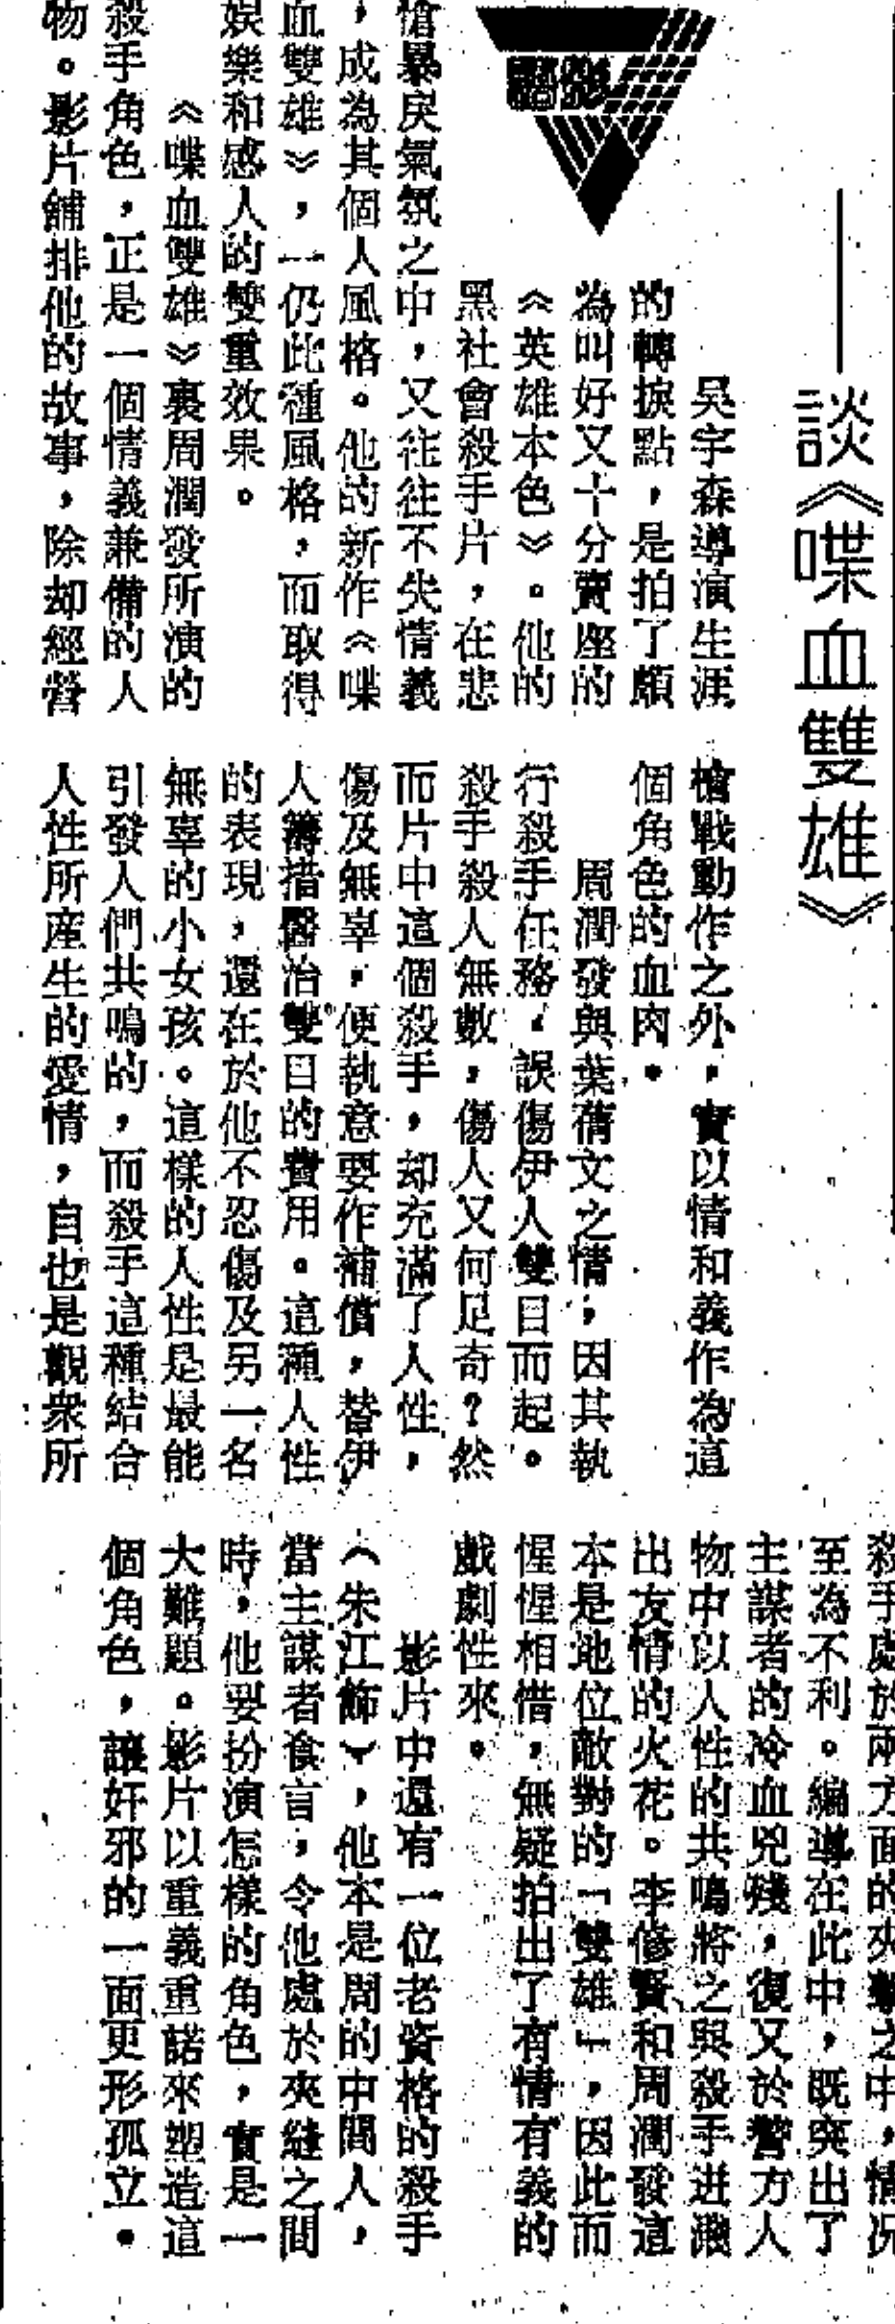 ——談《喋血雙雄》
吳宇森導演生涯
的轉捩點，是拍了頗
為叫好又十分賣座的
《英雄本色》。他的
黑社會殺手片，在悲
愴暴戾氣氛之中，又往往不失情義
，成為其個人風格。他的新作《喋
血雙雄》，一仍此種風格，而取得
娛樂和感人的雙重效果。
《喋血雙雄》裏周潤發所演的
殺手角色，正是一個情義兼備的人
物。影片舖排他的故事，除却經營
槍戰動作之外，實以情和義作為這
個角色的血肉。
周潤發與葉蒨文之情，因其執
行殺手任務，誤傷伊人雙目而起。
殺手殺人無數，傷人又何足奇？然
而片中這個殺手，却充滿了人性，
傷及無辜，便執意要作補償，替伊
人籌措醫治雙目的費用。這種人性
的表現，還在於他不忍傷及另一名
無辜的小女孩。這樣的人性是最能
引發人們共鳴的，而殺手這種結合
人性所產生的愛情，自也是觀衆所
殺手處於兩方面的夾擊之中，情況
至為不利。編導在此中，既突出了
主謀者的冷血兇殘，復又於警方人
物中以人性的共鳴將之與殺手迸濺
出友情的火花。李修賢和周潤發這
本是地位敵對的「雙雄」，因此而
惺惺相惜，無疑拍出了有情有義的
戲劇性來。
影片中還有一位老資格的殺手
（朱江飾），他本是周的中間人，
當主謀者食言，令他處於夾縫之間
時，他要扮演怎樣的角色，實是一
大難題。影片以重義重諾來塑造這
個角色，讓奸邪的一面更形孤立。